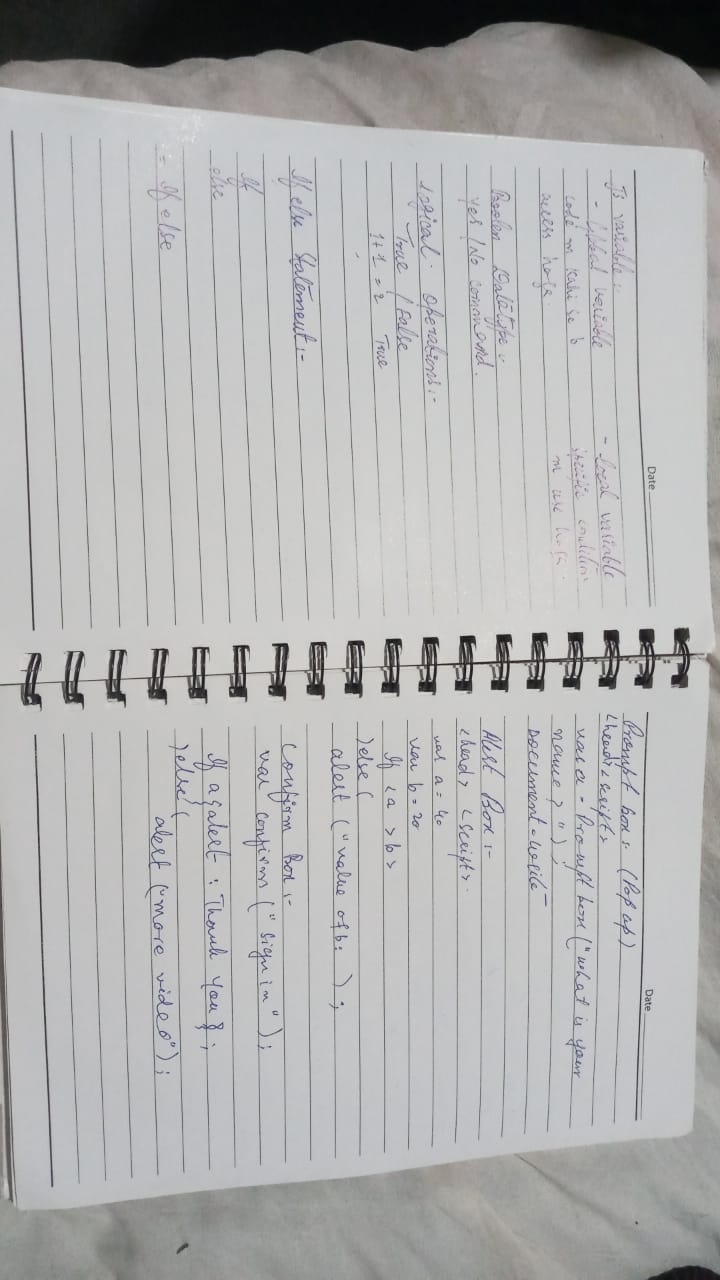 Date
Js variable :-
- Global variable
code m kahi se b
access hoga.
- local variable
specific condition
m use hoga.
Boolen Datatype :-
yes / No command.
Logical operations :-
True / False
1+1 = 2 True
If else Statement :-
If
else
= If else
Date
Prompt box :- (Pop up)
<head> <script>
var a = Prompt box ("what is your
name > ");
Document = write
Alert Box :-
<head> <script>.
var a = 40
var b = 20
If <a > b>
}else{
alert ("value of b: );
Confirm Box :-
var confirm ("sign in");
If a { alert : Thank You };
}else{
alert ("more video");